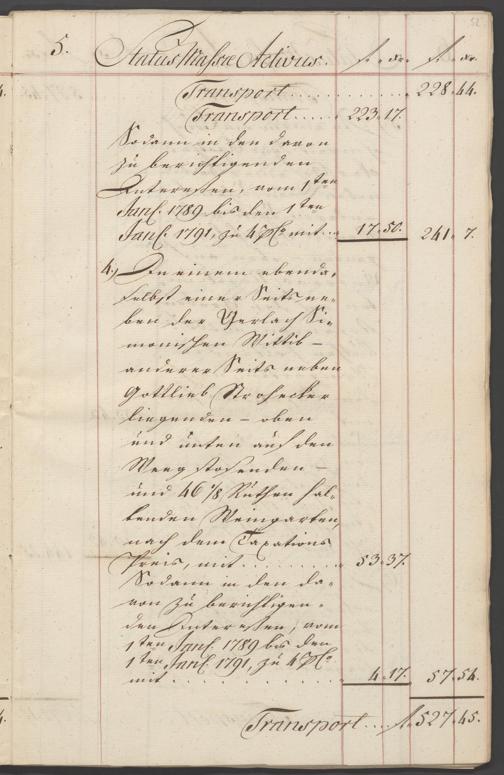 5. Status Massae Activus. f. xr. f. xr.
52
Transport . . . . . . . . . 228. 44.
Transport . . . . 223. 17.
Sodann in den davon
zu berichtigenden
Interessen, vom 1ten
Janr. 1789 bis den 1ten
Janr. 1791, zu 4 pC. mit . . 17. 50. 241. 7.
4.) In einem ebenda-
selbst einer Seits ne-
ben der Gerlach Si-
monischen Wittib –
anderer Seits neben
Gottlieb Strohecker
liegenden – oben
und unten auf den
Weeg stosenden –
und 46 1/8 Ruthen hal-
tenden Weingarten,
nach dem Taxations
Preis, mit . . . . . . . . 53. 37.
Sodann in den da-
von zu berichtigen-
den Interessen, vom
1ten Janr. 1789 bis den
1ten Janr. 1791, zu 4 pC.
mit . . . . . . . . . . . 4. 17. 57. 54.
Transport . . . . f. 527. 45.